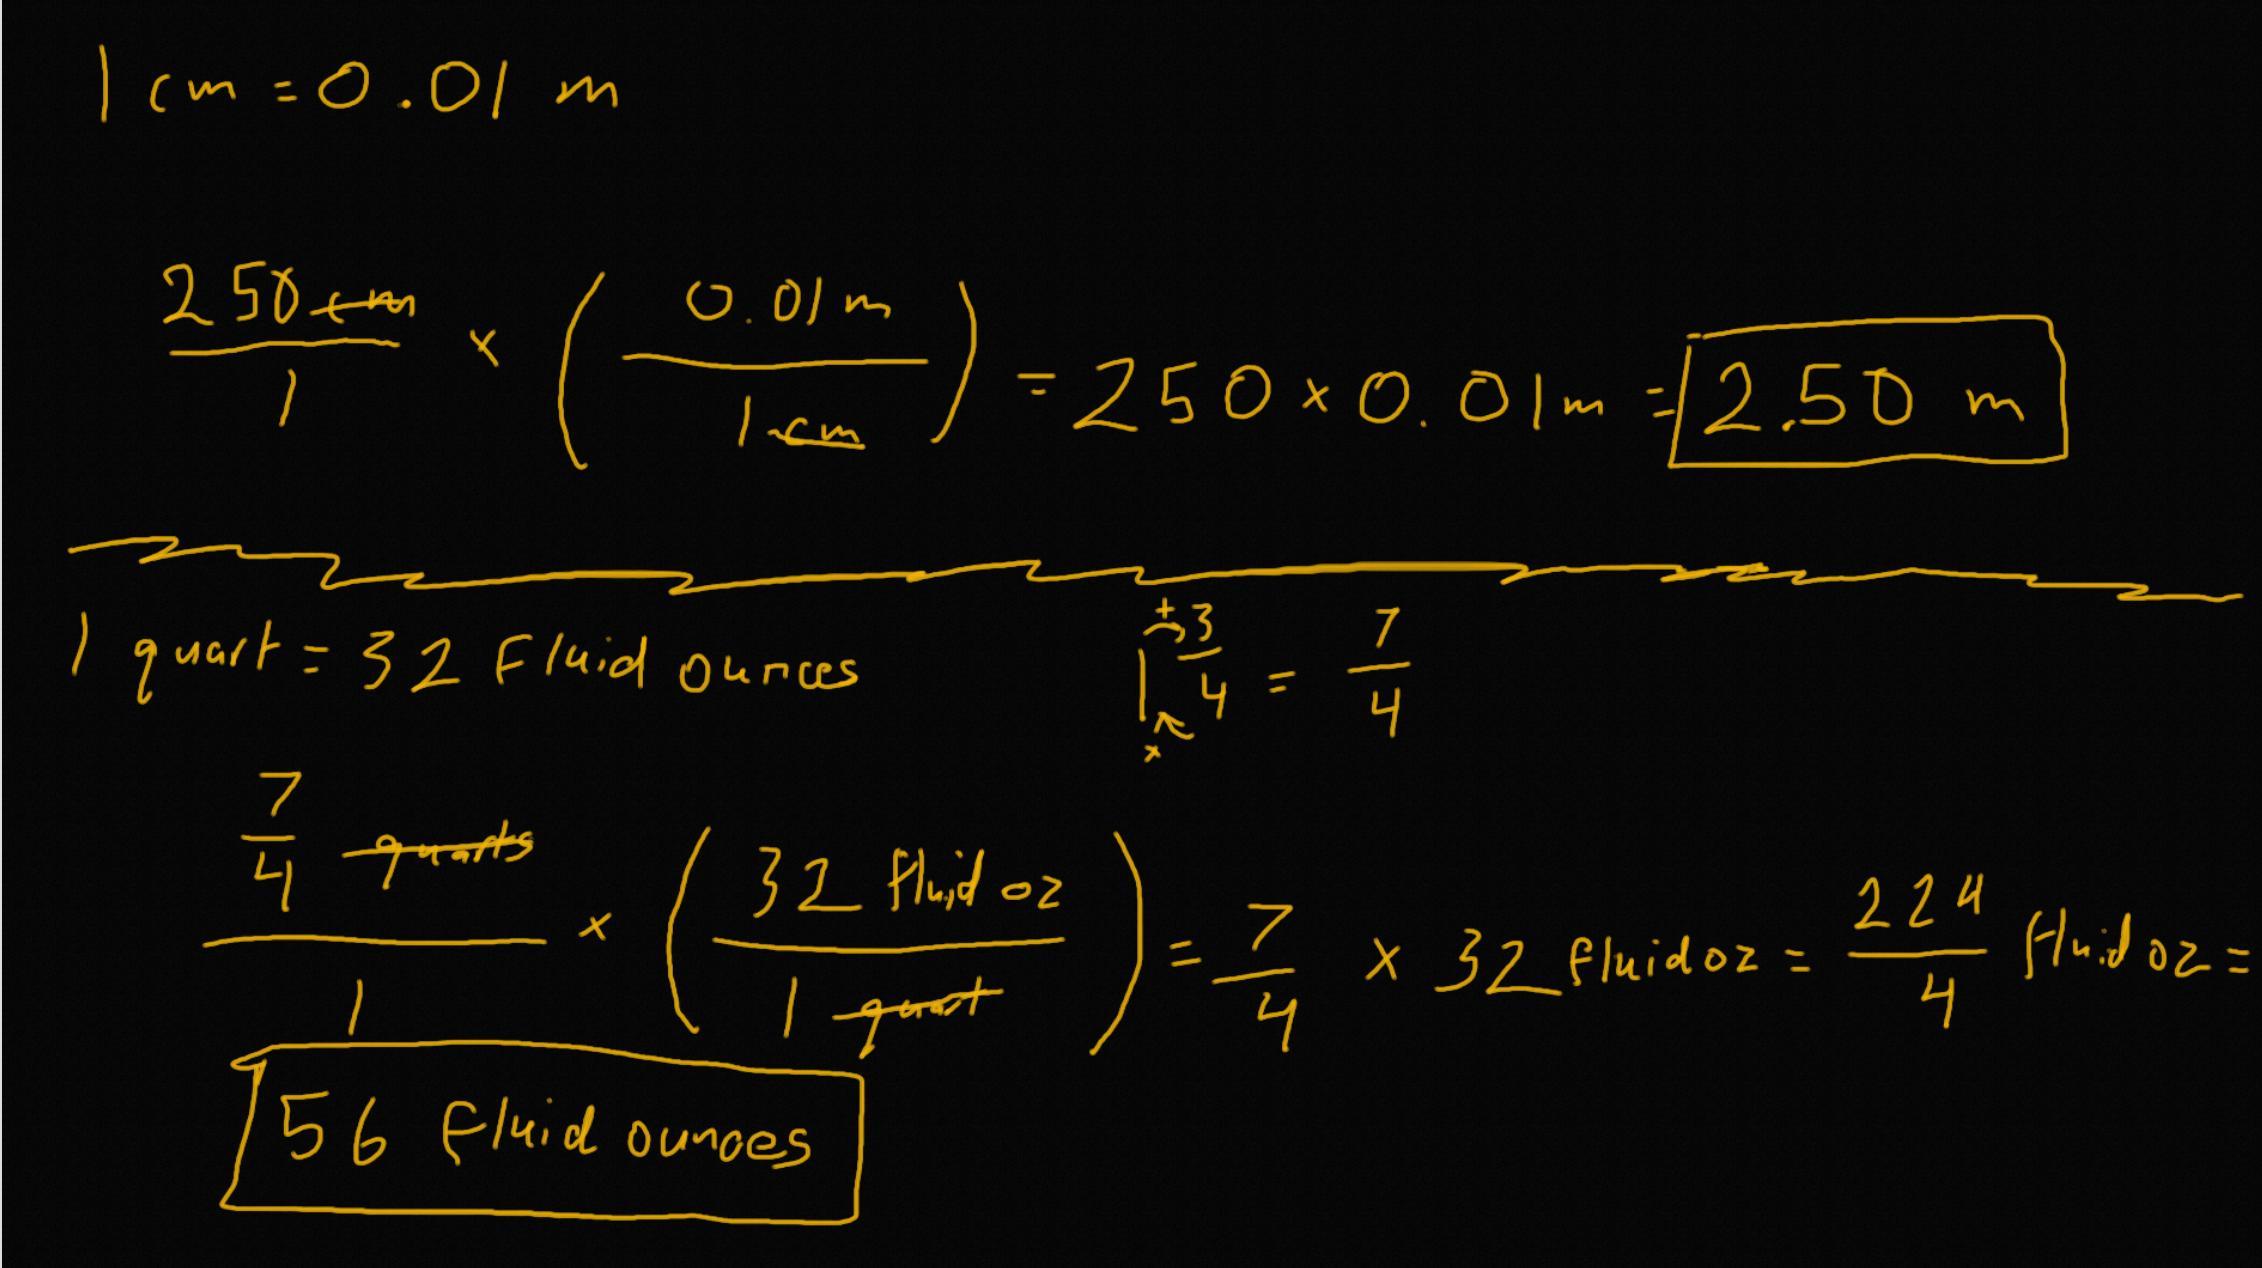 1 cm = 0.01 m
250 cm / 1 × ( 0.01 m / 1 cm ) = 250 × 0.01 m = 2.50 m
1 quart = 32 Fluid ounces
1 + 3/4 × = 7/4
7/4 quarts / 1 × ( 32 fluid oz / 1 quart ) = 7/4 × 32 fluid oz = 224/4 fluid oz =
56 fluid ounces